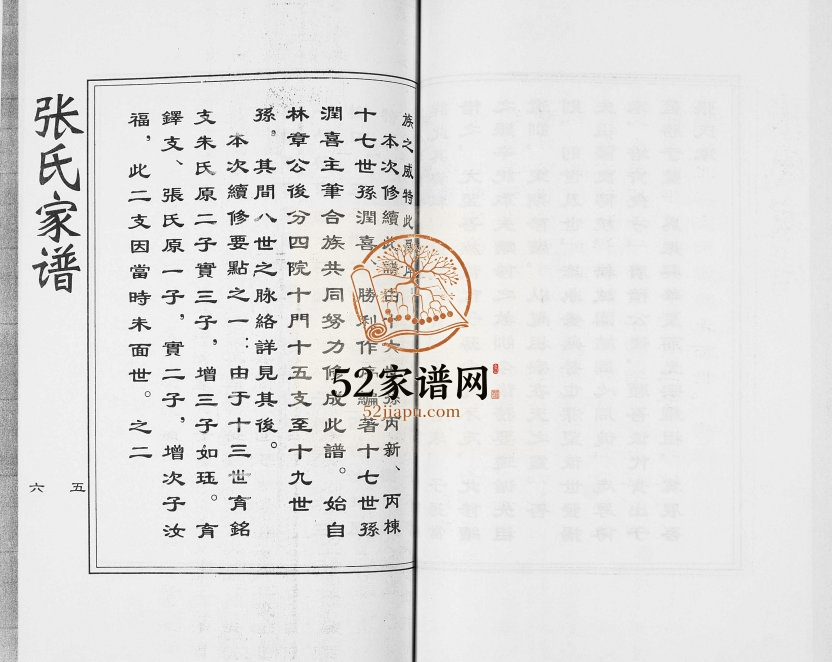 族之威特此
本次修續此譜由十六世孫丙新、丙棟
十七世孫潤喜、勝利作序編著十七世孫
潤喜主筆合族共同努力修成此譜。始自
林章公後分四院十門十五支至十九世
孫，其間八世之脉絡詳見其後。
本次續修要點之一：由于十三世育銘
支朱氏原二子實三子，增三子如珏。育
鐸支、張氏原一子，實二子，增次子汝
福，此二支因當時未面世。之二
张氏家谱
六 五
52家谱网
52jiapu.com